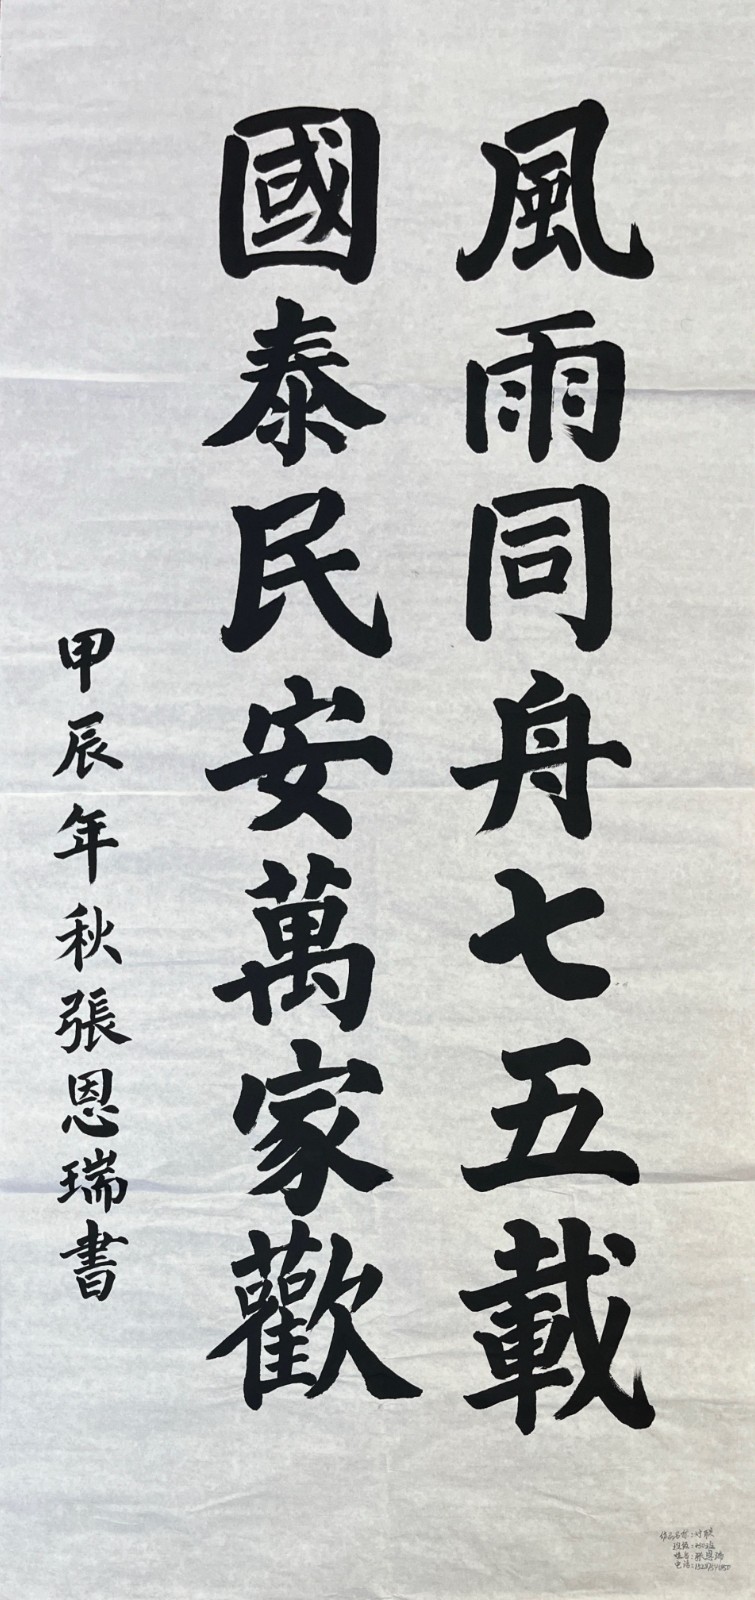 風雨同舟七五載
國泰民安萬家歡
甲辰年秋張恩瑞書
作品名称：对联
班级：
姓名：張恩瑞
电话：